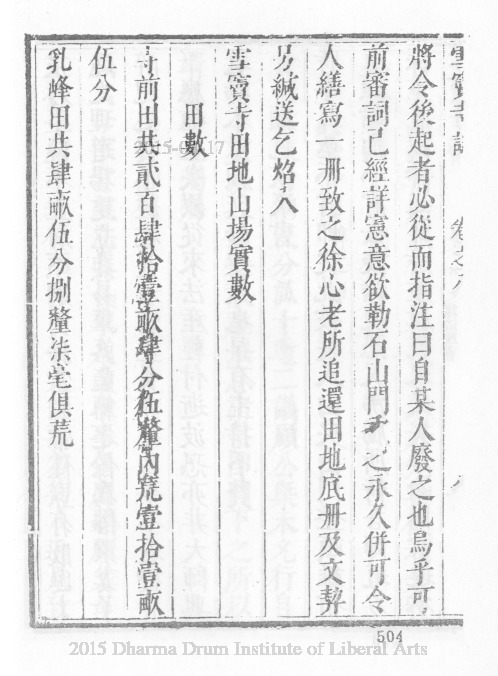 雪竇寺誌 卷之八 八
將令後起者必從而指注曰自某人廢之也烏乎可
前審詞已經詳憲意欲勒石山門 之永久併可令
人繕寫一冊致之徐心老所追還田地底冊及文契
另緘送乞焰入
雪竇寺田地山場實數
田數
寺前田共貳百肆拾壹畝肆分伍釐內荒壹拾壹畝
伍分
乳峰田共肆畝伍分捌釐柒毫俱荒
504
2015 Dharma Drum Institute of Liberal Arts